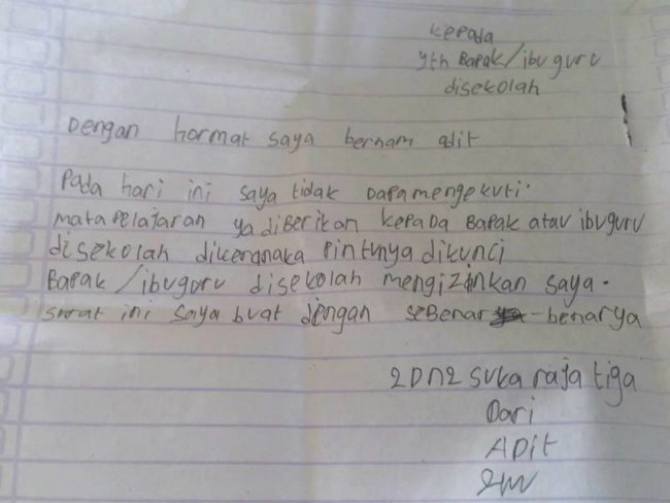 kepada
yth Bapak/ibu guru
disekolah
Dengan hormat saya bernam adit
Pada hari ini saya tidak Dapamengekuti.
mata pelajaran ya diberikan kepada Bapak atau ibuguru
disekolah dikeranaka pintunya dikunci
Bapak/ibuguru disekolah mengizinkan saya.
surat ini saya buat dengan sebenar-benarya
2Dn2 suka raja tiga
Dari
ADit